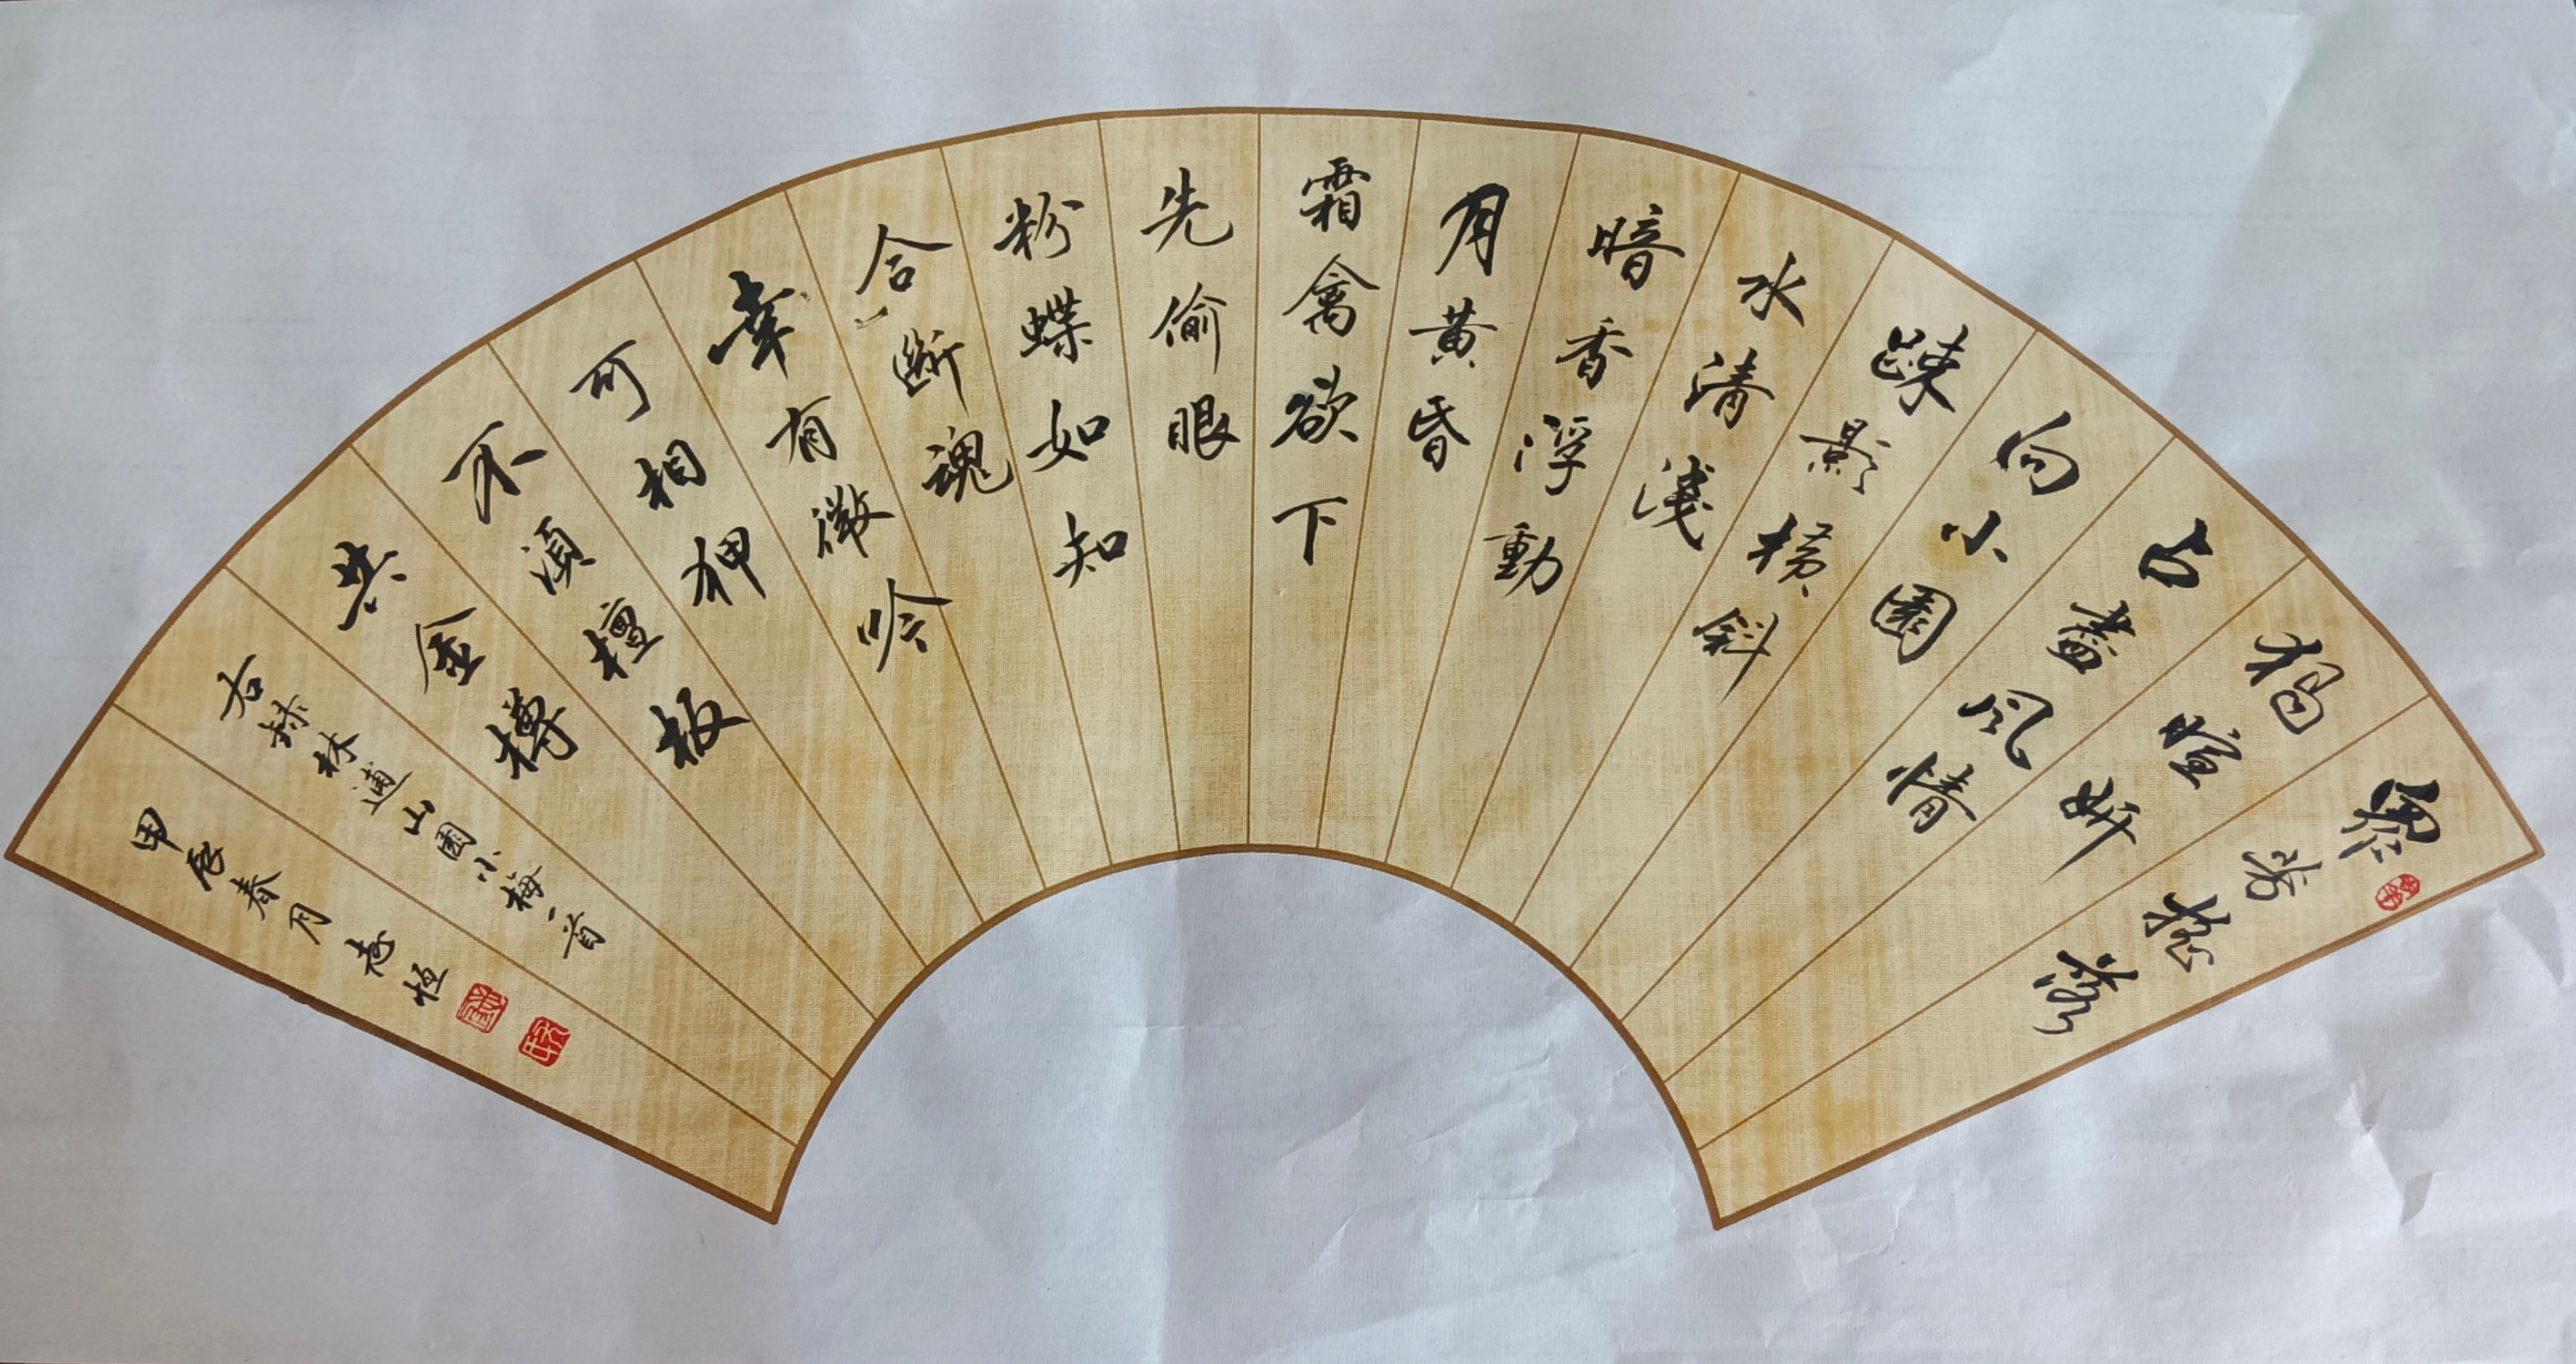 衆芳搖落
獨暄妍
占盡
風情
向小園
疎影橫斜
水清淺
暗香浮動
月黃昏
霜禽欲下
先偷眼
粉蝶如知
合斷魂
幸有微吟
可相狎
不須檀板
共金樽
右錄林逋山園小梅一首
甲辰春月 志恒